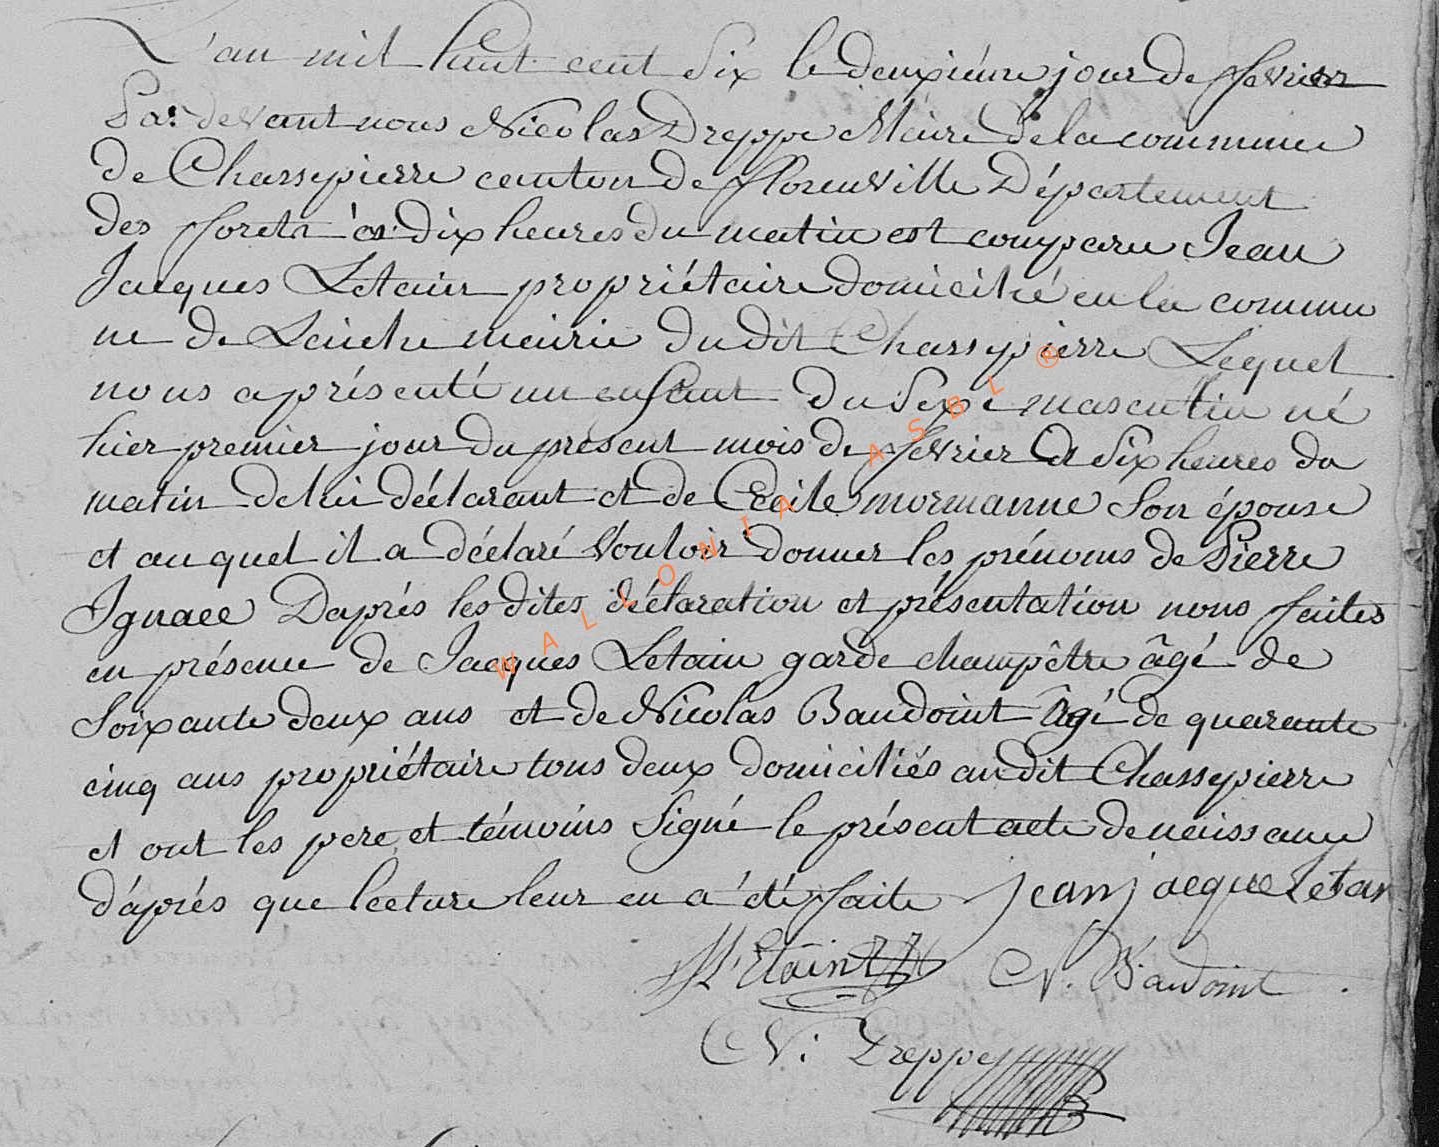 L'an mil huit cent six le deuxiéme jour de fevrier
Par devant nous Nicolas Dreppe Maire de la commune
de Chassepierre canton de florenville Département
des forets à dix heures du matin est comparu Jean
Jacques Letain propriétaire domicilié en la commu
ne de Laiche mairie du dit Chassepierre Lequel
nous a présenté un enfant du Sexe masculin né
hier premier jour du présent mois de fevrier à Six heures du
matin de lui déclarant et de Cécile mormanne Son épouse
et auquel il a déclaré Vouloir donner les prénoms de Pierre
Ignace Daprés les dites déclaration et présentation nous faites
en présence de Jacques Letain garde champêtre âgé de
Soixante deux ans et de Nicolas Baudoint âgé de quarante
cinq ans propriétaire tous deux domiciliés audit Chassepierre
et ont les pere et témoins Signé le présent acte de naissance
d'aprés que lecture leur en a été faite jean jacque letan
L'Etain N. Baudoint
N. Dreppe
WALLONIA ASBL ®